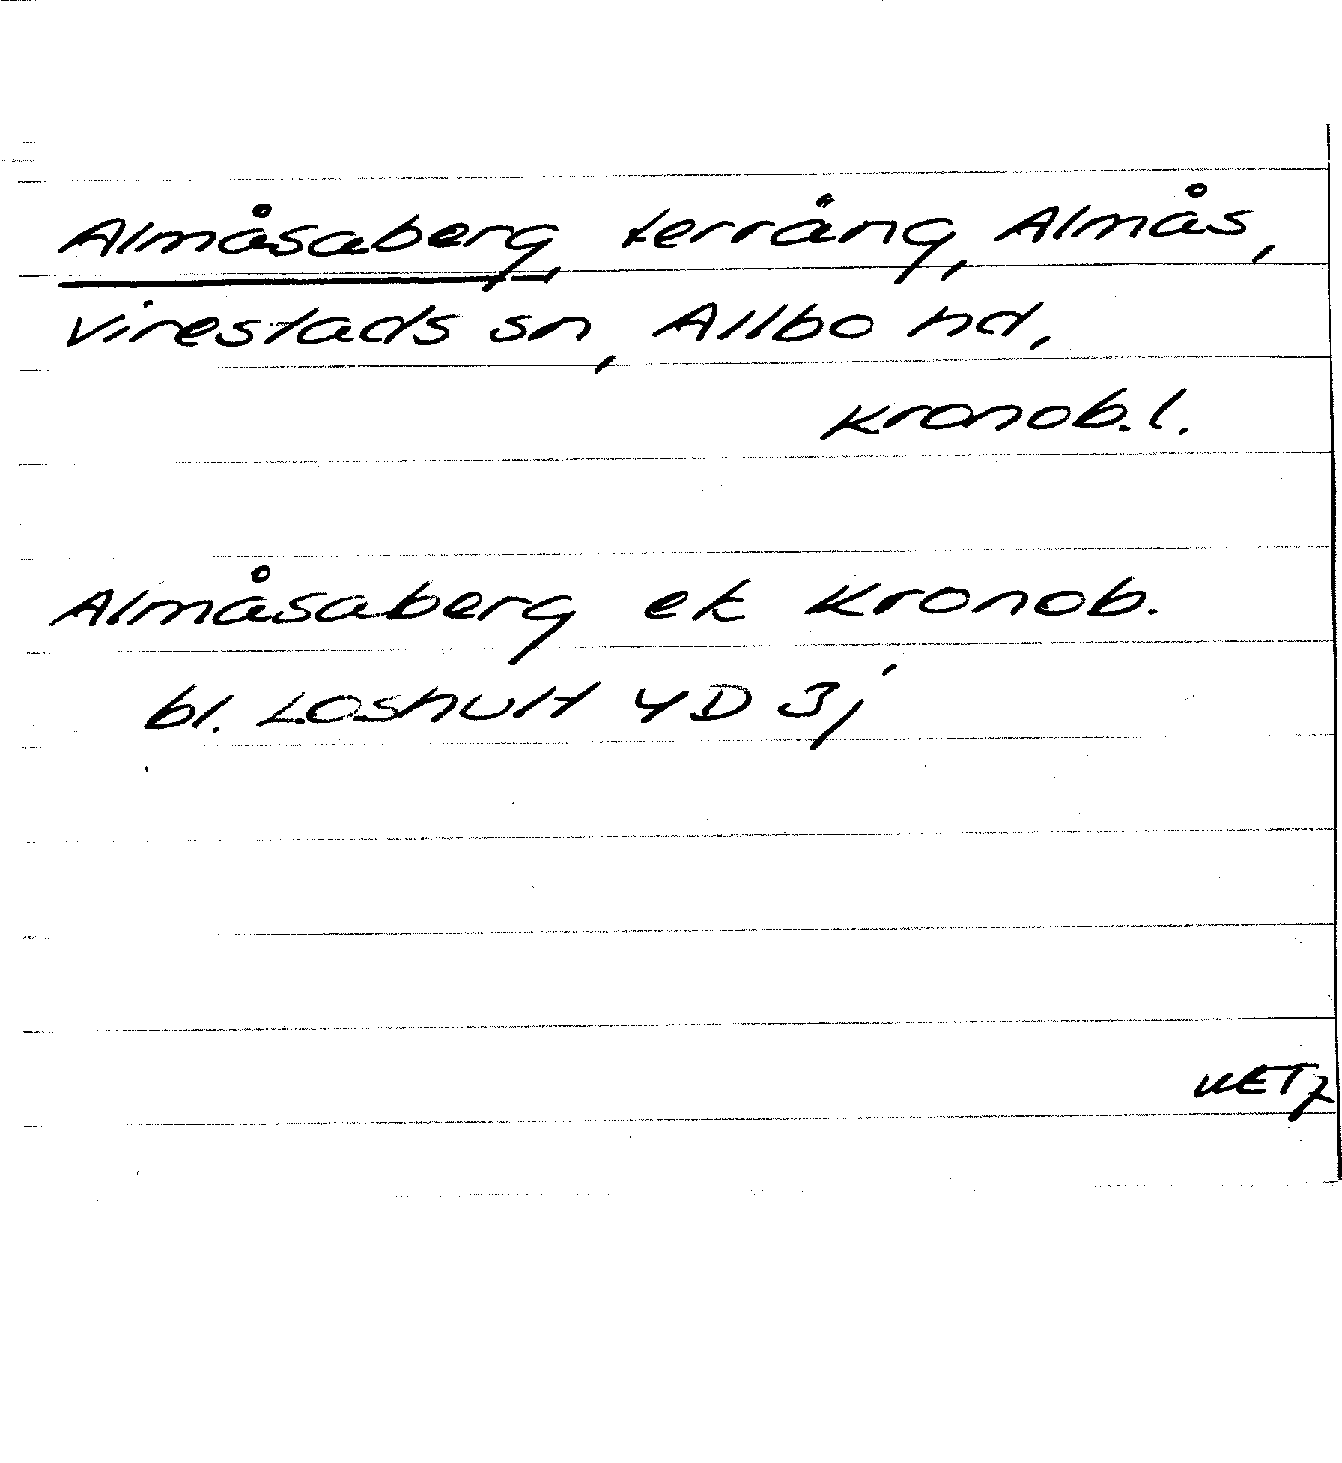 Almåsaberg, terräng, Almås,
Virestads sn, Allbo hd,
Kronob.l.
Almåsaberg ek Kronob.
bl. Loshult 4D 3j